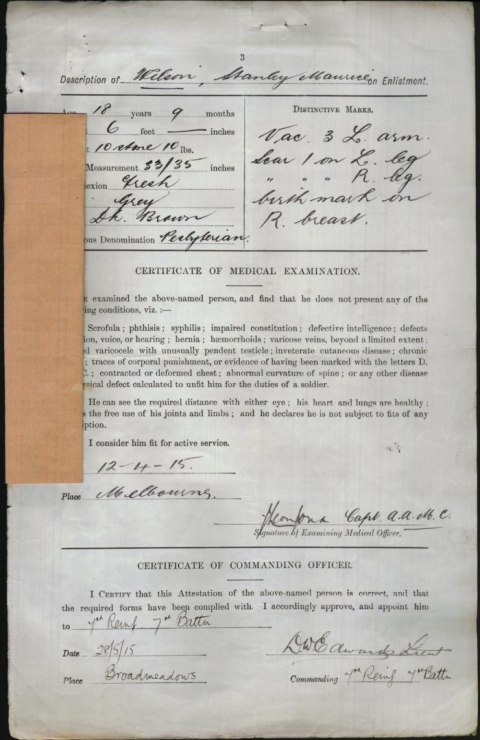 3
Description of Wilson, Stanley Maurice on Enlistment.
18 years 9 months
6 feet — inches
10 stone 10 lbs.
Measurement 33/35 inches
exion Fresh
Grey
Dk. Brown
ous Denomination Presbyterian.
DISTINCTIVE MARKS.
Vac. 3 L. arm.
Scar 1 on L. leg
" " " R. leg.
birth mark on
R. breast.
CERTIFICATE OF MEDICAL EXAMINATION.
e examined the above-named person, and find that he does not present any of the
ing conditions, viz. :—
Scrofula; phthisis; syphilis; impaired constitution; defective intelligence; defects
ion, voice, or hearing; hernia; hæmorrhoids; varicose veins, beyond a limited extent;
d varicocele with unusually pendent testicle; inveterate cutaneous disease; chronic
; traces of corporal punishment, or evidence of having been marked with the letters D.
C.; contracted or deformed chest; abnormal curvature of spine; or any other disease
sical defect calculated to unfit him for the duties of a soldier.
He can see the required distance with either eye; his heart and lungs are healthy;
s the free use of his joints and limbs; and he declares he is not subject to fits of any
iption.
I consider him fit for active service.
12-4-15.
Place Melbourne.
Capt. A.A.M.C.
Signature of Examining Medical Officer.
CERTIFICATE OF COMMANDING OFFICER.
I CERTIFY that this Attestation of the above-named person is correct, and that
the required forms have been complied with. I accordingly approve, and appoint him
to 7th Reinf. 7th Battn
Date 28/5/15
D W Edwards Lieut
Place Broadmeadows
Commanding 7th Reinf 7th Battn